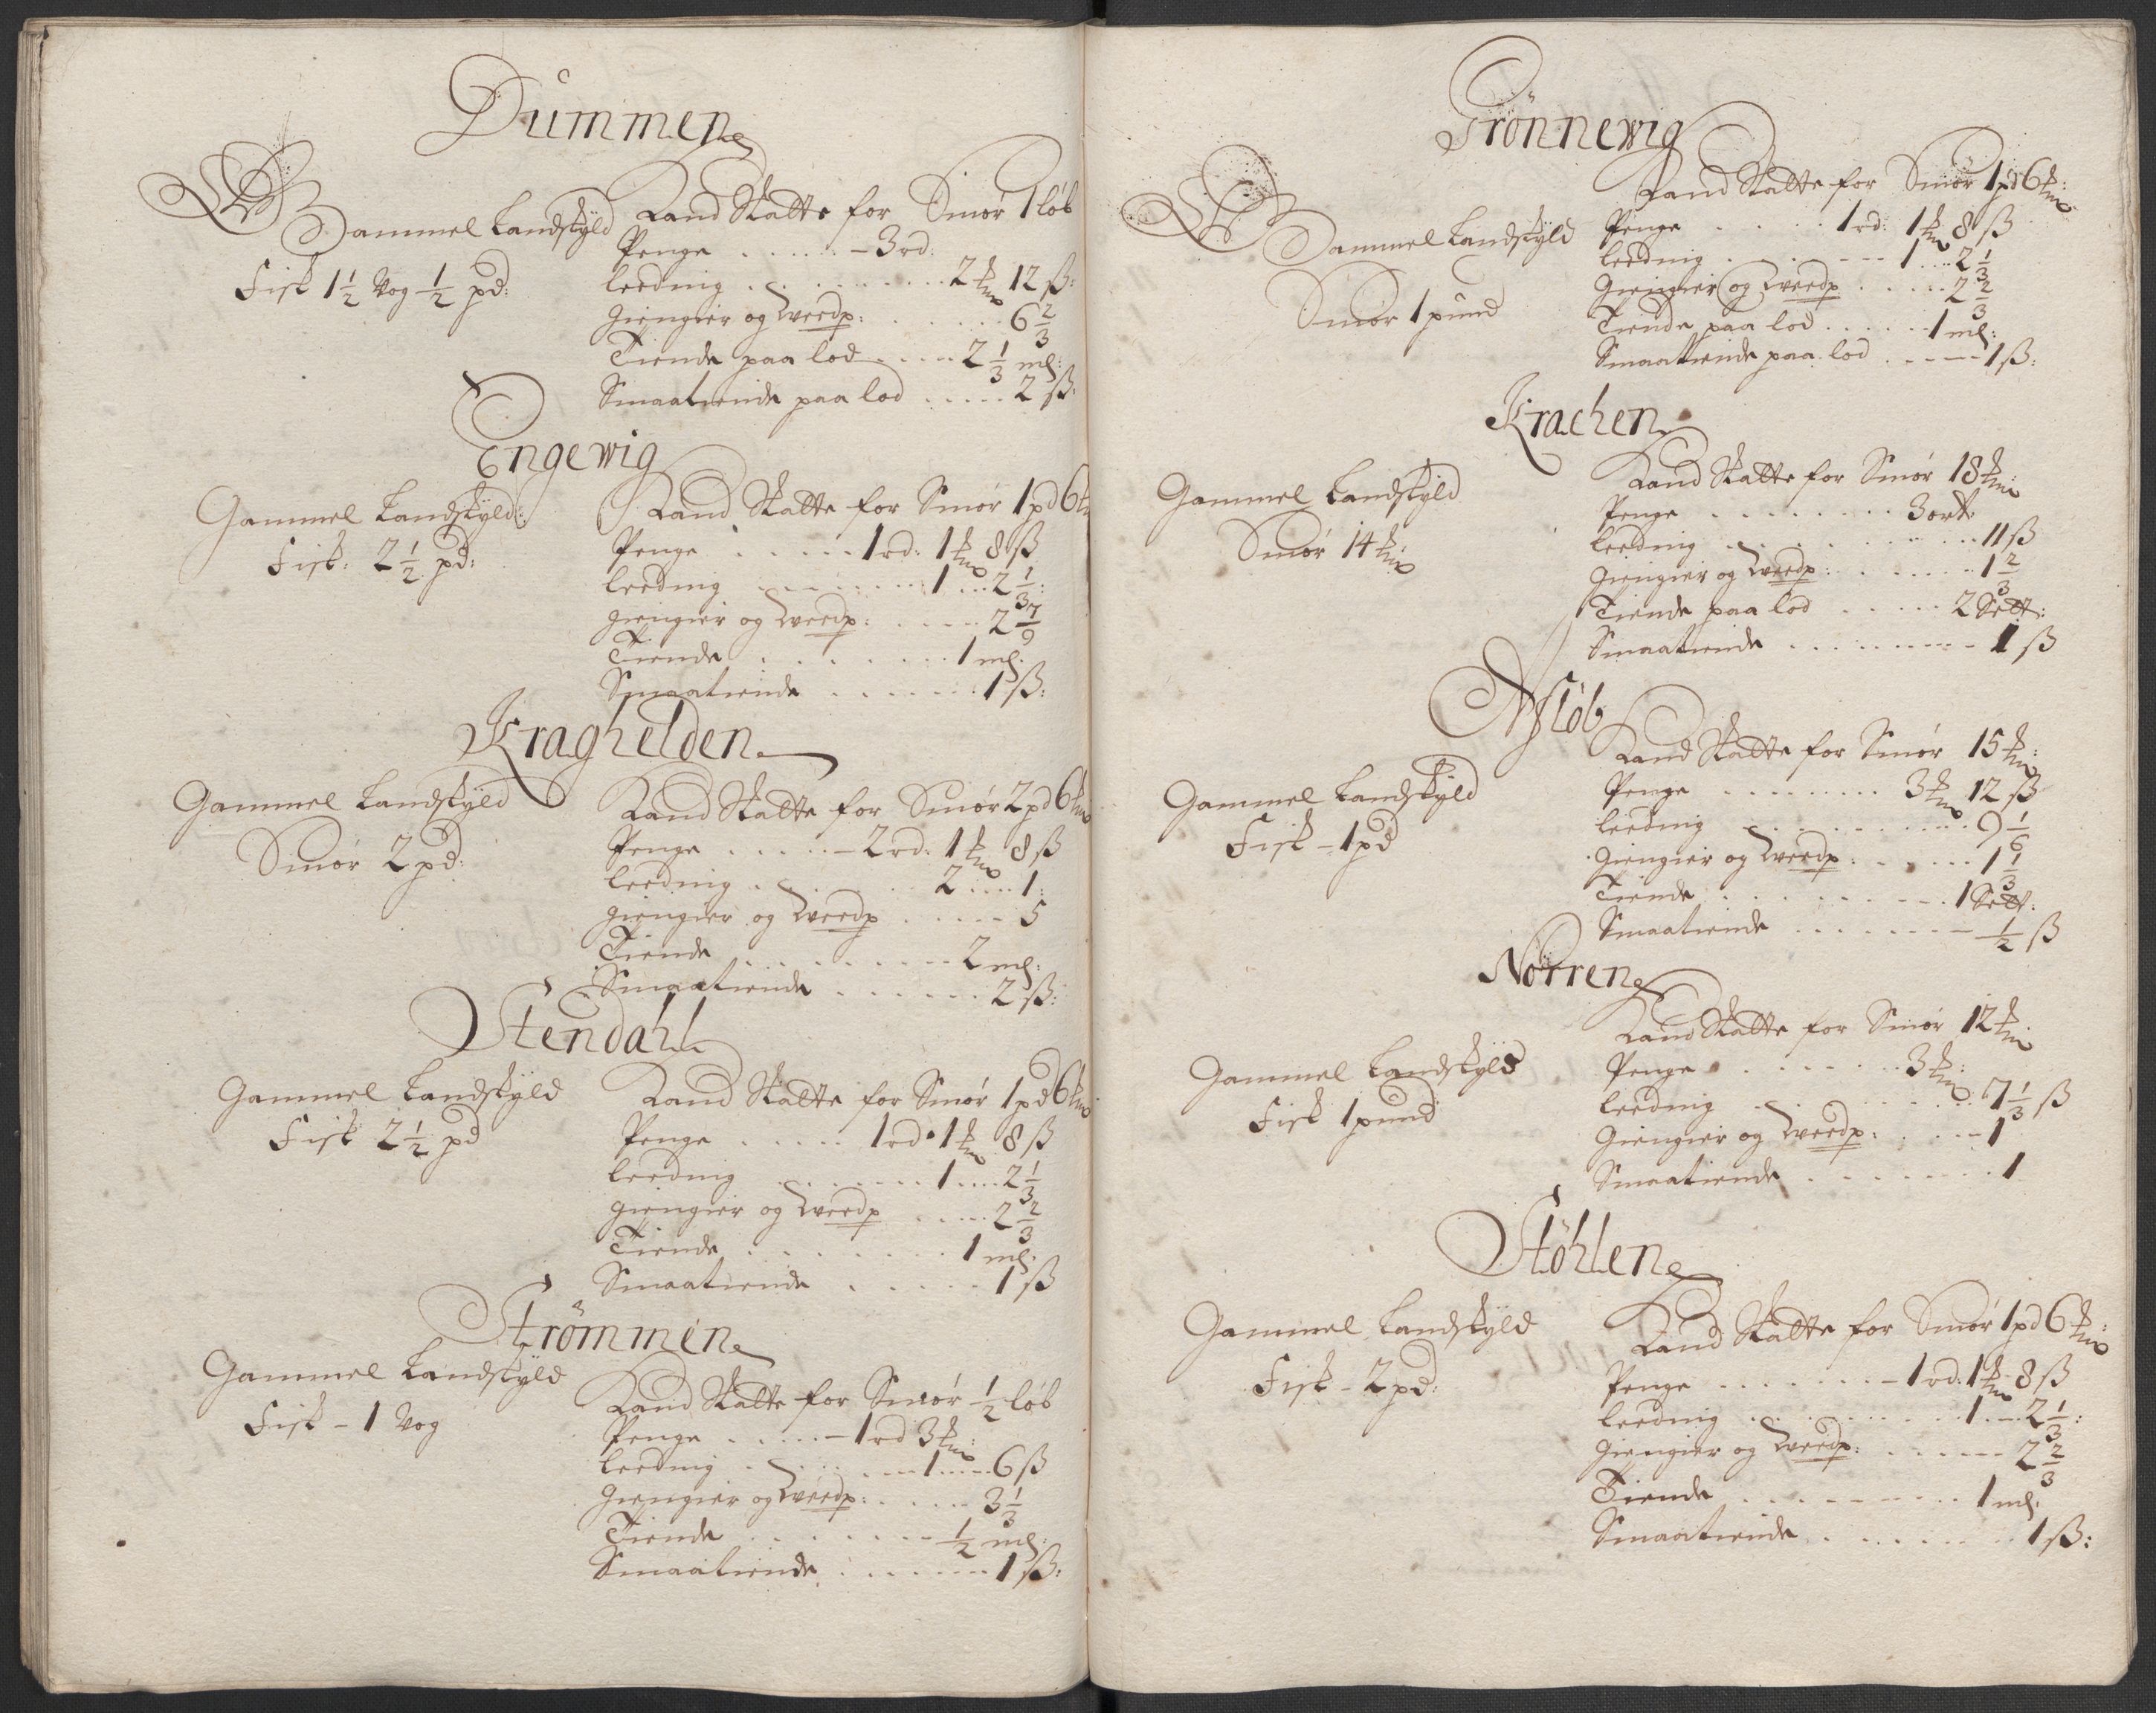 Dummen
Gammel Landskyld
Fisk 1 1/2 Vog 1/2 pd:
Land Skatte for Smør 1 løb
Penge ..... - 3 rd:
Leeding .......... 2 mk 12 ß:
Giengier og Sverdp: ...... 6 2/3
Tiende paa lod ..... 2 1/3 ml:
Smaatiende paa lod ..... 2 ß:
Engewig
Gammel Landskyld:
Fisk: 2 1/2 pd:
Land Skatte for Smør 1 pd 6 mk
Penge ...... 1 rd: 1 mk 8 ß
Leeding ........ 1 ... 2 1/3:
giengier og Sverdp: ..... 2 7/9
Tiende ........ 1 ml:
Smaatiende ....... 1 ß:
Kraghelden
Gammel Landskyld
Smør 2 pd:
Land Skatte for Smør 2 pd 6 mk
Penge ..... - 2 rd: 1 mk 8 ß
Leeding ....... 2 .... 1:
giengier og Sverdp ..... 5
Tiende ......... 2 ml:
Smaatiende ...... 2 ß:
Stendahl
Gammel Landskyld
Fisk 2 1/2 pd
Land Skatte for Smør 1 pd 6 mk
Penge ..... 1 rd: 1 mk 8 ß
Leeding ....... 1 .... 2 1/3
giengier og Sverdp ..... 2 2/3
Tiende ........ 1 ml:
Smaatiende ..... 1 ß
Strømmen
Gammel Landskyld
Fisk - 1 Vog
Land Skatte for Smør 1/2 løb
Penge ..... - 1 rd 3 mk:
Leeding ....... 1 .... 6 ß
Giengier og Sverdp: ..... 3 1/3
Tiende ........ 1/2 ml:
Smaatiende ....... 1 ß:
Grønnewig
Gammel Landskyld
Smør 1 pund
Land Skatte for Smør 1 pd 6 mk:
Penge ..... 1 rd: 1 mk 8 ß
Leeding ....... 1 ... 2 1/3
Giengier og Sverdp ..... 2 2/3
Tiende paa lod ...... 1 ml:
Smaattiende paa lod ..... 1 ß:
Krachen
Gammel Landskyld
Smør 14 mk
Land Skatte for Smør 18 mk:
Penge ........ 3 ort
Leeding .......... 11 ß
Giengier og Sverdp: ...... 1 2/3
Tiende paa lod ..... 2 Sett:
Smaatiende ......... 1 ß
Asløb
Gammel Landskyld
Fisk - 1 pd
Land Skatte for Smør 15 mk:
Penge ........ 3 mk 12 ß
Leeding .......... 9 1/6
Giengier og Sverdp: ...... 1 1/3
Tiende ......... 1 Sett:
Smaatiende ....... 1/2 ß
Nørren
Gammel Landskyld
Fisk 1 pund
Land Skatte for Smør 12 mk:
Penge ....... 3 mk:
Leeding ......... 7 1/3 ß
Giengier og Sverdp: .... 1
Smaatiende ....... 1
Støhlen
Gammel Landskyld
Fisk - 2 pd:
Land Skatte for Smør 1 pd 6 mk:
Penge ....... 1 rd: 1 mk 8 ß
Leeding ......... 1 ... 2 1/3:
Giengier og Sverdp: ...... 2 2/3
Tiende ......... 1 ml:
Smaatiende ........ 1 ß: